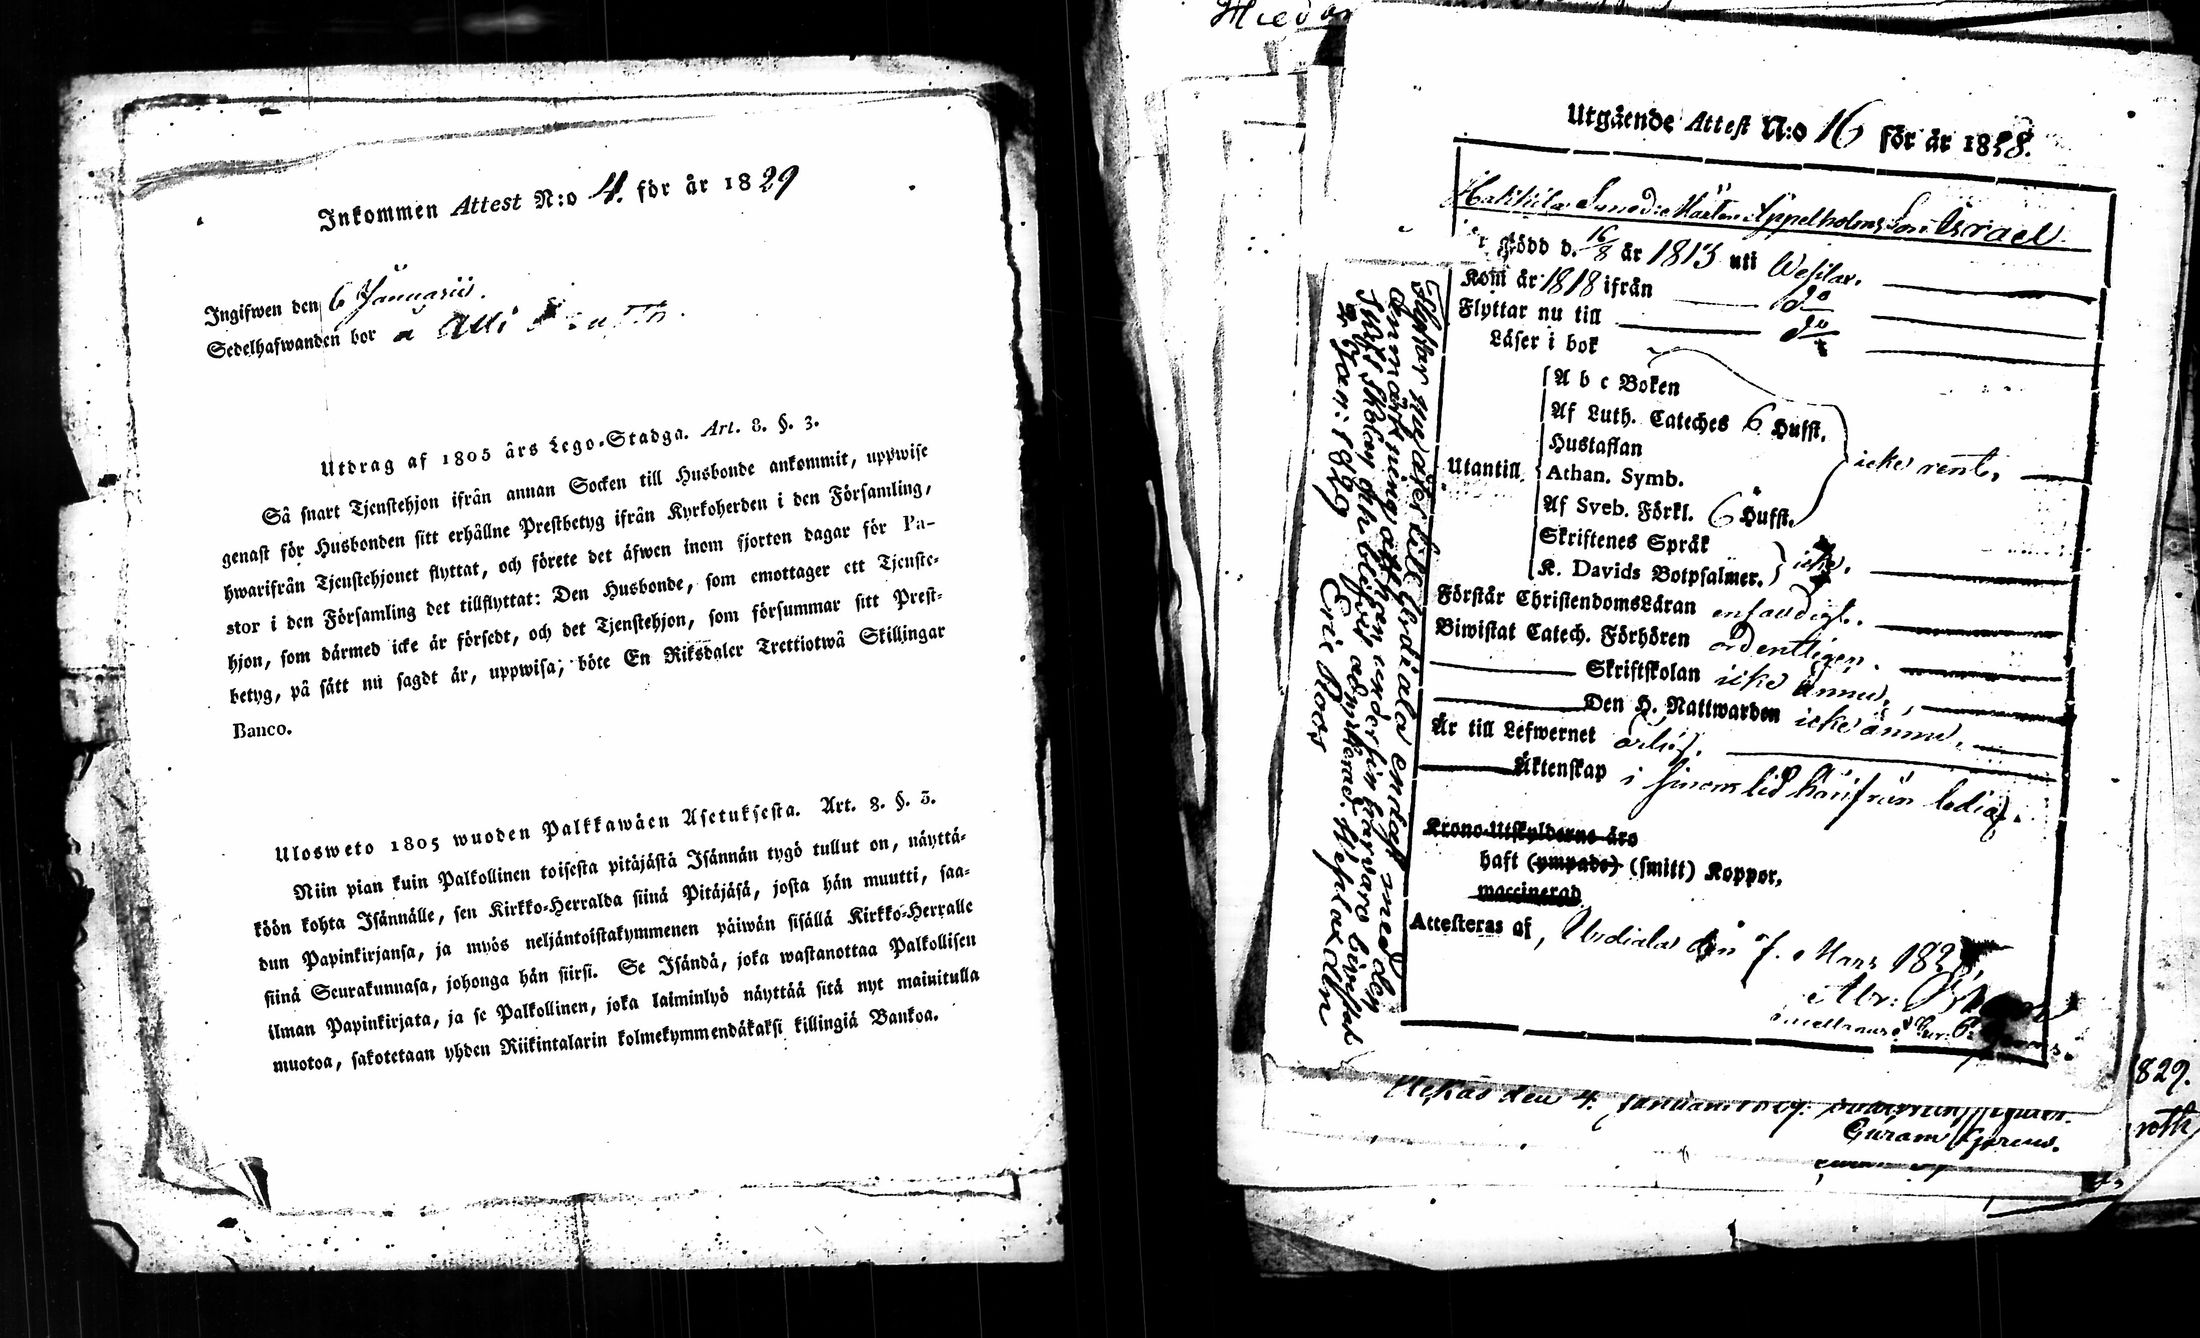 Inkommen Attest N:o 4. för år 1829
Ingifwen den 6 Januarii.
Sedelhafwanden bor a Alli
Utdrag af 1805 års Lego-Stadga. Art. 8. §. 3.
Så snart Tjenstehjon ifrån annan Socken till Husbonde ankommit, uppwise
genast för Husbonden sitt erhållne Prestbetyg ifrån Kyrkoherden i den Församling,
hwarifrån Tjenstehjonet flyttat, och förete det äfwen inom fjorton dagar för Pa-
stor i den Församling det tillflyttat: Den Husbonde, som emottager ett Tjenste-
hjon, som därmed icke är försedt, och det Tjenstehjon, som försummar sitt Prest-
betyg, på sätt nu sagdt är, uppwisa, böte En Riksdaler Trettiotwå Skillingar
Banco.
Ulosweto 1805 wuoden Palkkawäen Asetuksesta. Art. 8. §. 3.
Niin pian kuin Palkollinen toisesta pitäjästä Isännän tygö tullut on, näyttä-
köön kohta Isännälle, sen Kirkko-Herralda siinä Pitäjäsä, josta hän muutti, saa-
dun Papinkirjansa, ja myös neljäntoistakymmenen päiwän sisällä Kirkko-Herralle
siinä Seurakunnasa, johonga hän siirsi. Se Isändä, joka wastanottaa Palkollisen
ilman Papinkirjata, ja se Palkollinen, joka laiminlyö näyttää sitä nyt mainitulla
muotoa, sakotetaan yhden Riikintalarin kolmekymmendäkaksi killingiä Bankoa.
Utgående Attest N:o 16 för år 1828.
Appelholms Son Israel
född d. 16/8 år 1813 uti Wesilax.
Kom år 1818 ifrån do
Flyttar nu till do
Läser i bok
Utantill
A b c Boken
Af Luth. Cateches 6 Hufst.
Hustaflan
Athan. Symb.
Af Sveb. Förkl. 6 Hufst.
icke rent.
Skriftenes Språk
K. Davids Botpsalmer. icke.
Förstår ChristendomsLäran enfaldigt.
Biwistat Catech. Förhören ordentligen.
Skriftskolan icke ännu.
Den H. Nattwarden icke ännu.
Är till Lefwernet ärlig.
Äktenskap i sinom tid härifrån ledig.
Krono-Utskylderne äro
haft (ympade) (smitt) Koppor,
vaccinerad
Attesteras af, Urdiala den 7. Mars 182
Abr:
Flyttar nu åter till Urdiala endast med den
anmärkning att han under sin härvaro biwistat
Skrift Skolan och blifvit admitterad. Wesilax den
2 Jan: 1829 Eric Roos
den 4. Januarii 1829.
829.